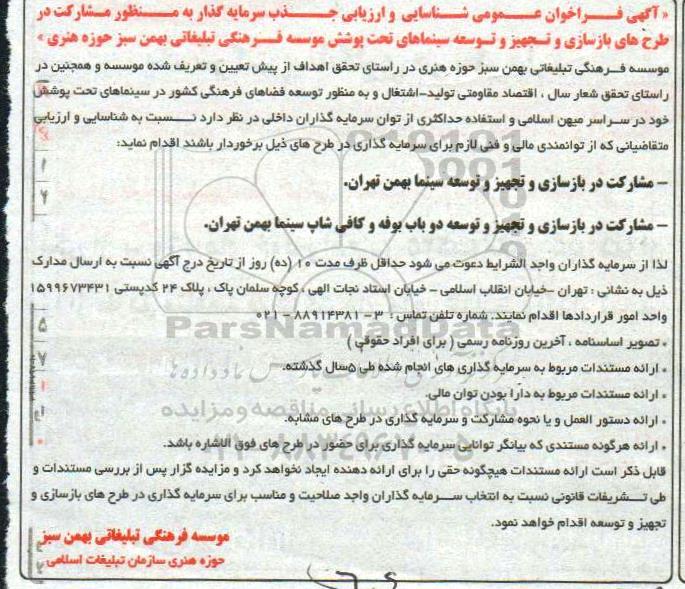 « آگهی فراخوان عمومی شناسایی و ارزیابی جذب سرمایه گذار به منظور مشارکت در
طرح های بازسازی و تجهیز و توسعه سینماهای تحت پوشش موسسه فرهنگی تبلیغاتی بهمن سبز حوزه هنری »
موسسه فرهنگی تبلیغاتی بهمن سبز حوزه هنری در راستای تحقق اهداف از پیش تعیین و تعریف شده موسسه و همچنین در
راستای تحقق شعار سال ، اقتصاد مقاومتی تولید-اشتغال و به منظور توسعه فضاهای فرهنگی کشور در سینماهای تحت پوشش
خود در سراسر میهن اسلامی و استفاده حداکثری از توان سرمایه گذاران داخلی در نظر دارد نسبت به شناسایی و ارزیابی
متقاضیانی که از توانمندی مالی و فنی لازم برای سرمایه گذاری در طرح های ذیل برخوردار باشند اقدام نماید:
– مشارکت در بازسازی و تجهیز و توسعه سینما بهمن تهران.
– مشارکت در بازسازی و تجهیز و توسعه دو باب بوفه و کافی شاپ سینما بهمن تهران.
لذا از سرمایه گذاران واجد الشرایط دعوت می شود حداقل ظرف مدت ۱۰ (ده) روز از تاریخ درج آگهی نسبت به ارسال مدارک
ذیل به نشانی : تهران -خیابان انقلاب اسلامی - خیابان استاد نجات الهی ، کوچه سلمان پاک ، پلاک ۲۴ کدپستی ۱۵۹۹۶۷۳۴۳۱
واحد امور قراردادها اقدام نمایند. شماره تلفن تماس : ۳ - ۸۸۹۱۴۳۸۱ - ۰۲۱
ParsNamadData
• تصویر اساسنامه ، آخرین روزنامه رسمی ( برای افراد حقوقی )
• ارائه مستندات مربوط به سرمایه گذاری های انجام شده طی ۵سال گذشته.
• ارائه مستندات مربوط به دارا بودن توان مالی.
پایگاه اطلاع رسانی مناقصه و مزایده
• ارائه دستور العمل و یا نحوه مشارکت و سرمایه گذاری در طرح های مشابه.
• ارائه هرگونه مستندی که بیانگر توانایی سرمایه گذاری برای حضور در طرح های فوق الاشاره باشد.
قابل ذکر است ارائه مستندات هیچگونه حقی را برای ارائه دهنده ایجاد نخواهد کرد و مزایده گزار پس از بررسی مستندات و
طی تشریفات قانونی نسبت به انتخاب سرمایه گذاران واجد صلاحیت و مناسب برای سرمایه گذاری در طرح های بازسازی و
تجهیز و توسعه اقدام خواهد نمود.
موسسه فرهنگی تبلیغاتی بهمن سبز
حوزه هنری سازمان تبلیغات اسلامی